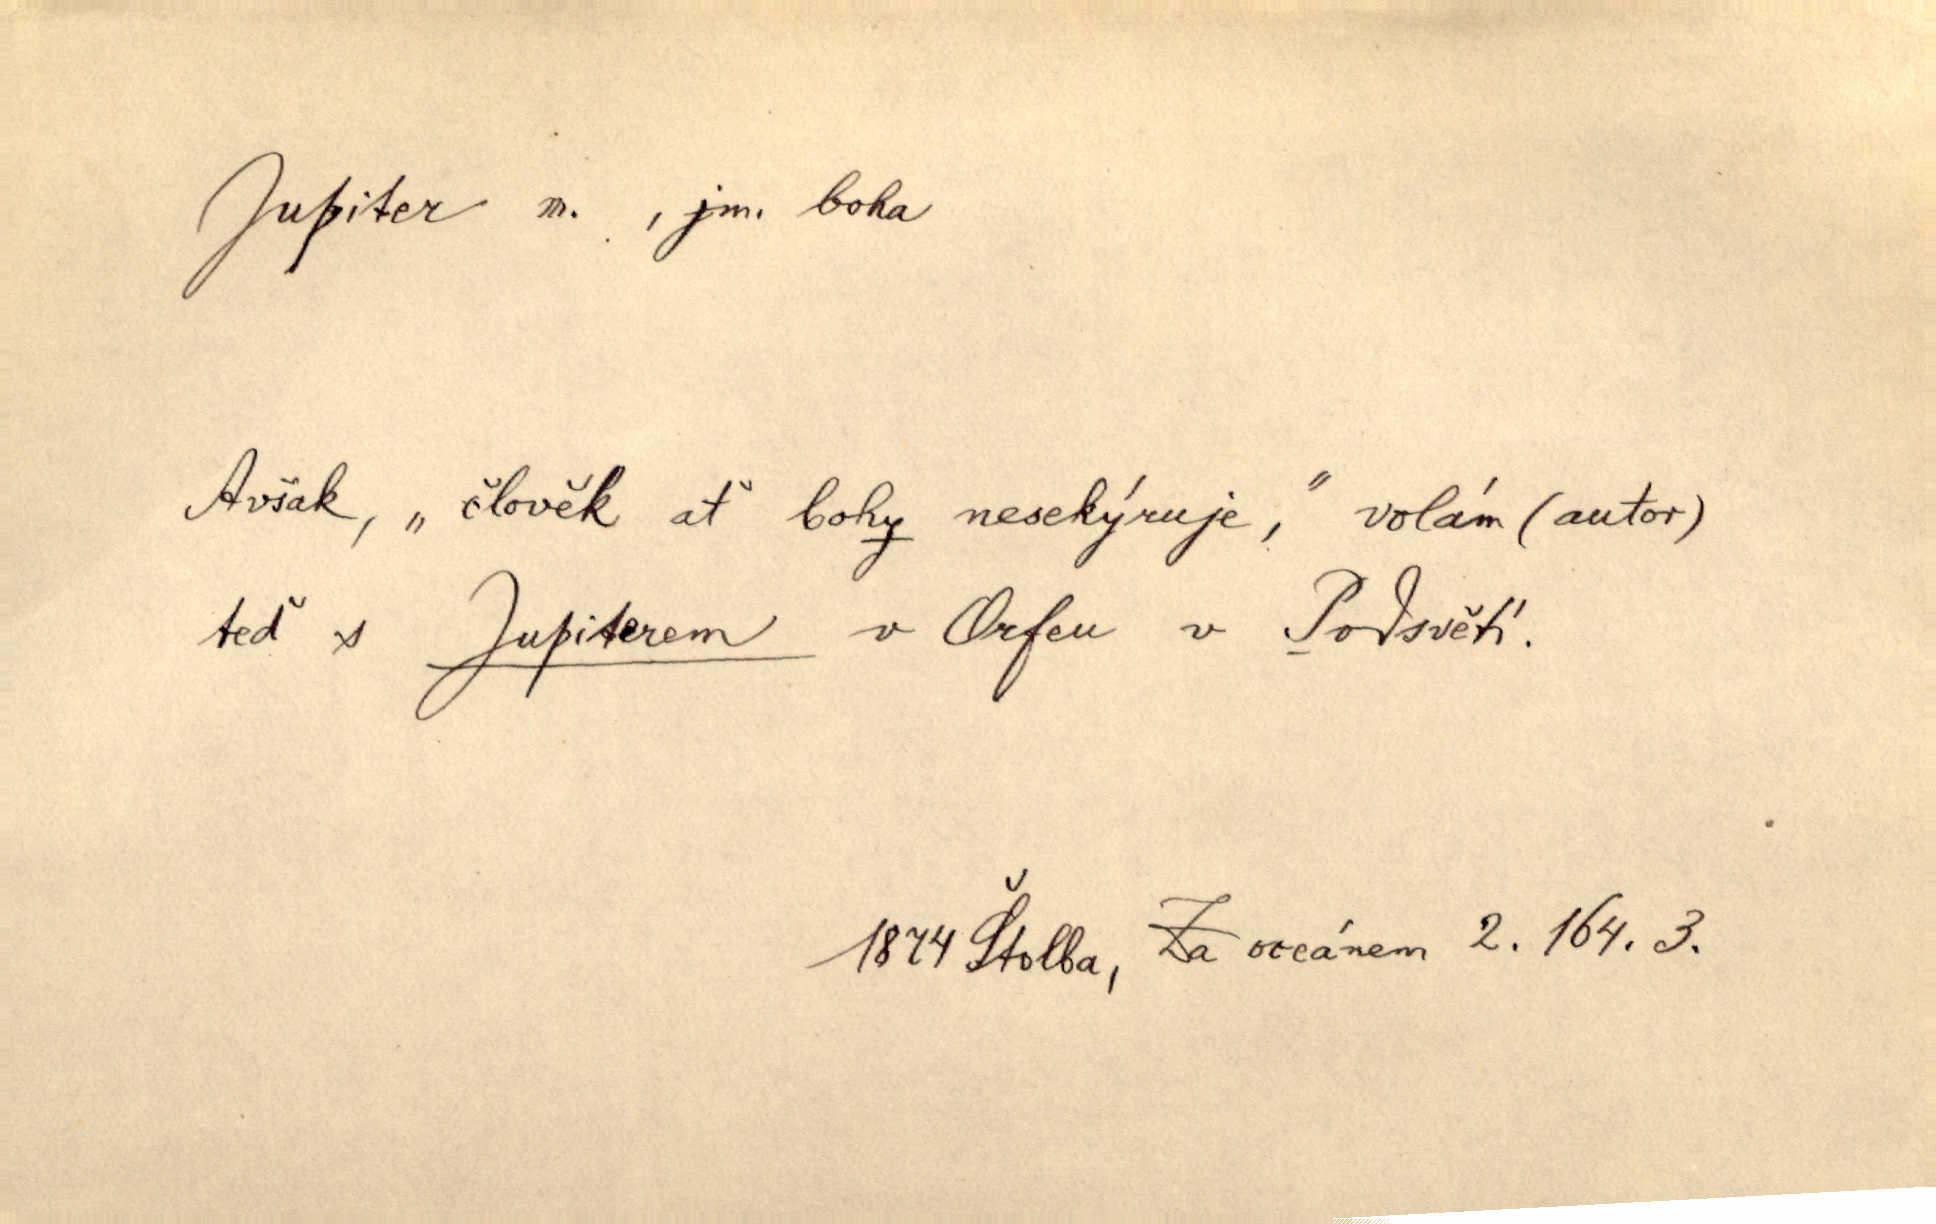 Jupiter m. , jm. boha
Avšak, „člověk ať bohy nesekýruje,“ volám (autor)
teď s Jupiterem v Orfeu v Podsvětí.
1874 Štolba, Za oceánem 2. 164. 3.